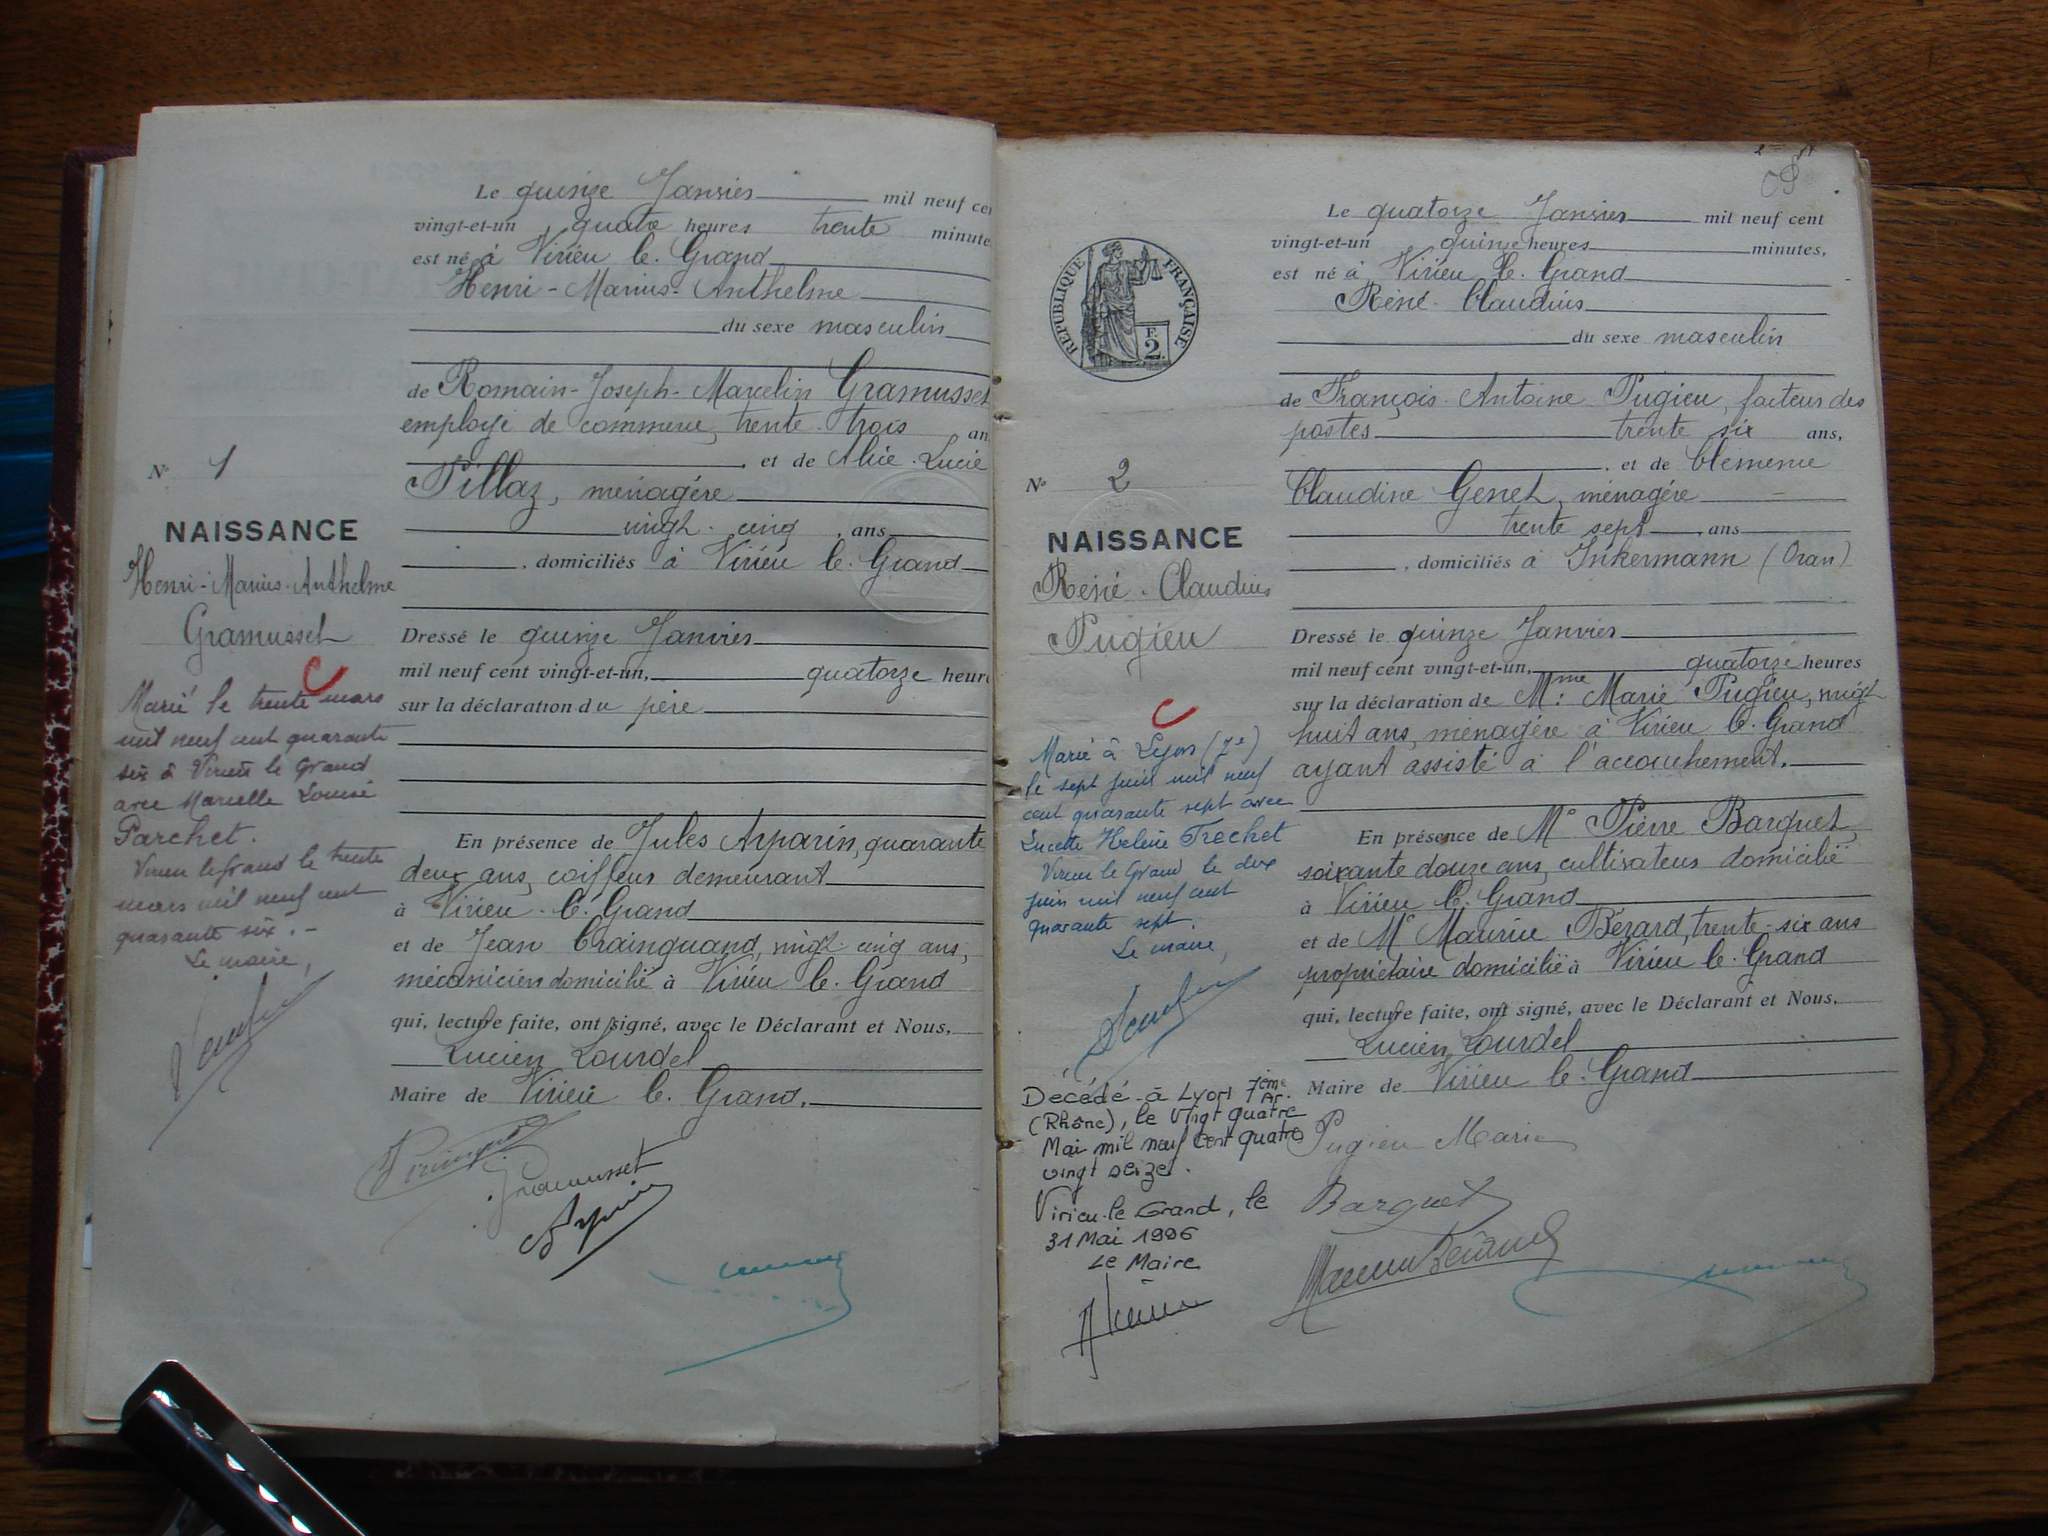 Le quinze Janvier mil neuf cen
vingt-et-un quatre heures trente minute
est né à Virieu le Grand
Henri-Marius-Anthelme
du sexe masculin
de Romain-Joseph-Marcelin Gramusset
employé de commerce, trente-trois an
, et de Alice-Lucie
Pillaz, ménagère
vingt-cinq, ans
, domiciliés à Virieu le Grand
Dressé le quinze Janvier
mil neuf cent vingt-et-un, quatorze heure
sur la déclaration du père
En présence de Jules Arparin, quarante
deux ans, coiffeur demeurant
à Virieu-le-Grand
et de Jean Crainquand, vingt-cinq ans,
mécanicien domicilié à Virieu le Grand
qui, lecture faite, ont signé, avec le Déclarant et Nous,
Lucien Lourdel
Maire de Virieu le Grand.
Gramusset
N° 1
NAISSANCE
Henri-Marius-Anthelme
Gramusset
Marié le trente mars
mil neuf cent quarante
six à Virieu le Grand
avec Marcelle Louise
Parchet.
Virieu le Grand le trente
mars mil neuf cent
quarante six.-
Le maire,
RÉPUBLIQUE FRANÇAISE
F.
2
N° 2
NAISSANCE
René-Claudius
Pugieu
Marié à Lyon (7e)
le sept juin mil neuf
cent quarante sept avec
Lucette Hélène Trochet
Virieu le Grand le dix
juin mil neuf cent
quarante sept.
Le maire,
Décédé à Lyon 7ème Ar.
(Rhône), le vingt quatre
Mai mil neuf cent quatre
vingt seize.
Virieu-le Grand, le
31 Mai 1996
Le Maire
Le quatorze Janvier mil neuf cent
vingt-et-un quinze heures minutes,
est né à Virieu le Grand
René-Claudius
du sexe masculin
de François-Antoine Pugieu, facteur des
postes trente six ans,
, et de Clémence
Claudine Genet, ménagère
trente sept, ans
, domiciliés à Inkermann (Oran)
Dressé le quinze Janvier
mil neuf cent vingt-et-un, quatorze heures
sur la déclaration de Mme Marie Pugieu, vingt
huit ans, ménagère à Virieu le Grand
ayant assisté à l'accouchement.
En présence de Mr Pierre Barquet,
soixante douze ans, cultivateur domicilié
à Virieu le Grand
et de Mr Maurice Bézard, trente-six ans
propriétaire domicilié à Virieu le Grand
qui, lecture faite, ont signé, avec le Déclarant et Nous,
Lucien Lourdel
Maire de Virieu le Grand
Pugieu Marie
Barquet